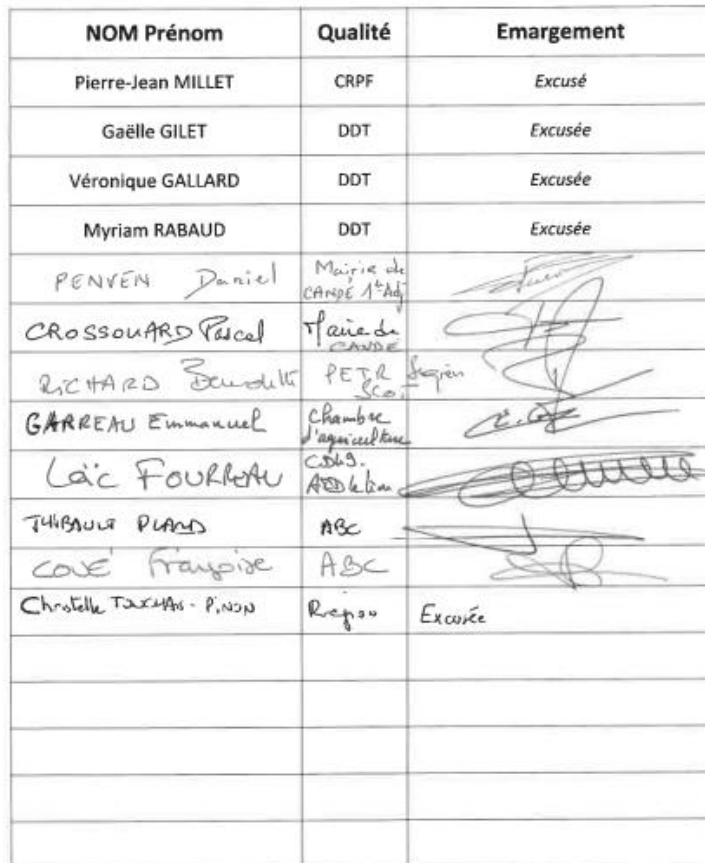 NOM Prénom Qualité Emargement
Pierre-Jean MILLET CRPF Excusé
Gaëlle GILET DDT Excusée
Véronique GALLARD DDT Excusée
Myriam RABAUD DDT Excusée
PENVEN Daniel Mairie de
CANDÉ 1er Adj
CROSSOUARD Pascal Mairie de
CANDE
RICHARD Benedette PETR Segréen
SCoT
GARREAU Emmanuel Chambre
d'agriculture
Loïc FOURREAU CD49.
THIBAULT PLAND ABC
COUÉ Françoise ABC
Christelle PINON Région Excusée